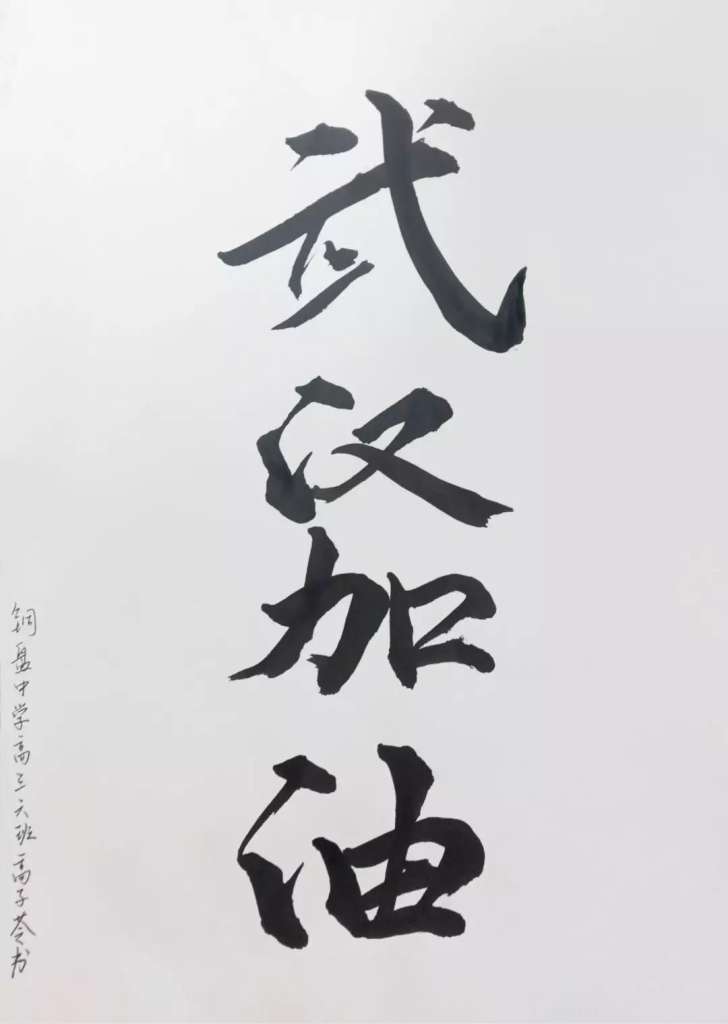 武汉加油
铜盘中学高三六班高子苓书